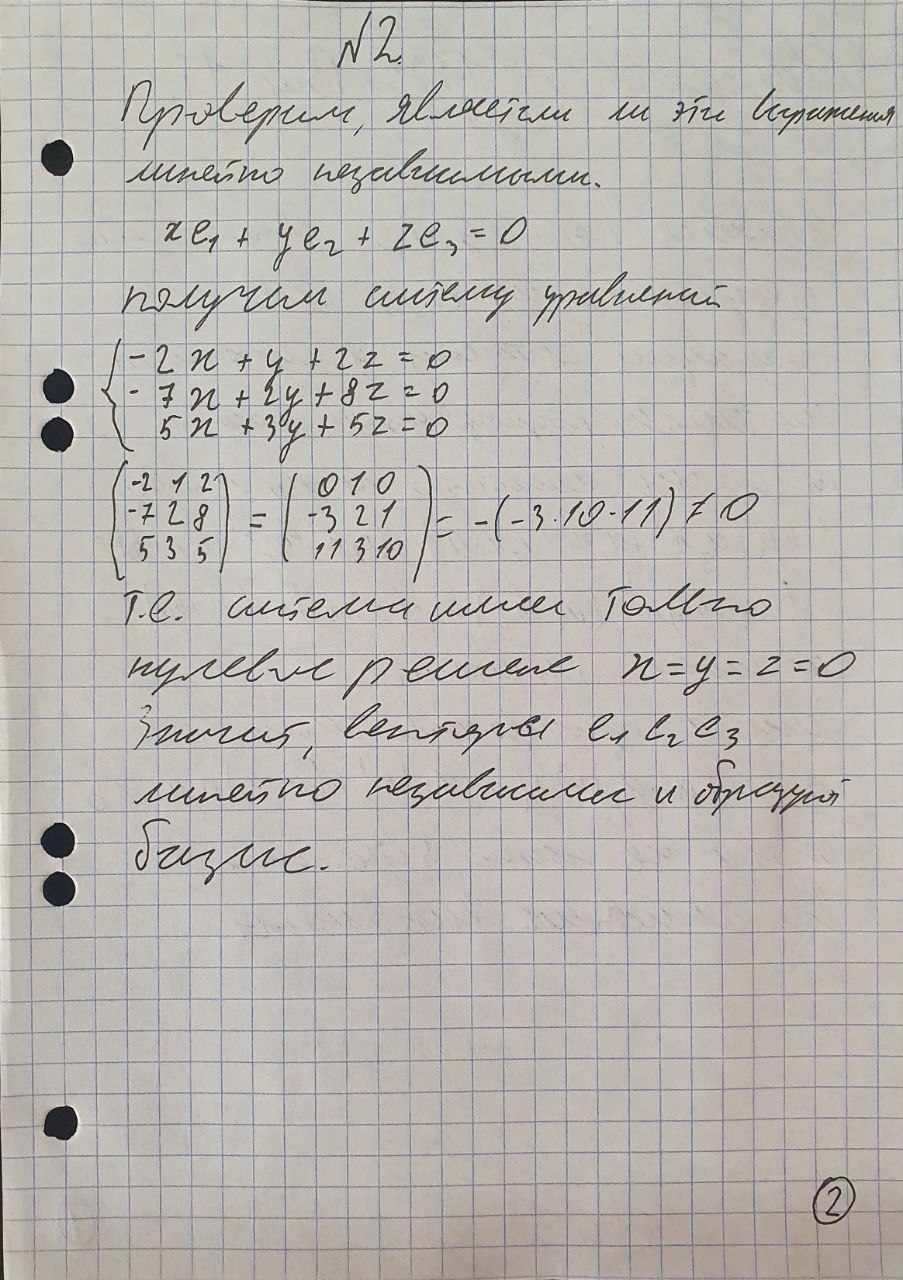 №2.
Проверим, является ли эти выражения
линейно независимыми.
xe₁ + ye₂ + ze₃ = 0
получим систему уравнений
{ -2x + y + 2z = 0
-7x + 2y + 8z = 0
5x + 3y + 5z = 0
( -2 1 2 ) = ( 0 1 0 )
( -7 2 8 ) = ( -3 2 1 ) = -(-3·10-11) ≠ 0
( 5 3 5 ) ( 11 3 10 )
т.е. система имеет только
нулевое решение x=y=z=0
Значит, векторы e₁ e₂ e₃
линейно независимы и образуют
базис.
2